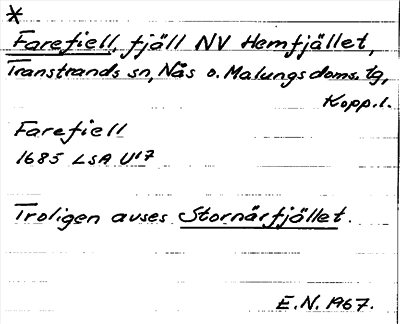 *
Farefiell, fjäll NV Hemfjället,
Transtrands sn, Nås o. Malungs doms. tg,
Kopp. l.
Farefiell
1685 LSA U17
Troligen avses Stornärfjället.
E.N. 1967.